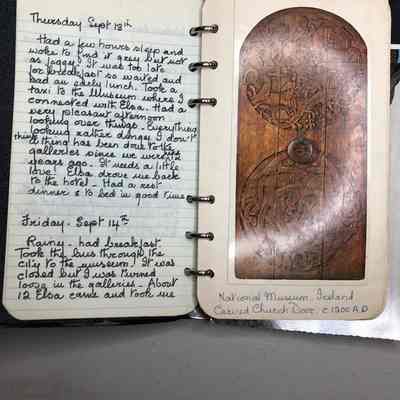 Thursday Sept 13th
Had a few hours sleep and
woke to find it grey but not
as foggy. It was too late
for breakfast so waited and
had an early lunch. Took a
taxi to the Museum where I
connected with Elsa. Had a
very pleasant afternoon
looking over things. Everything
looking rather dingy I don't
think a thing has been done to the
galleries since we were
years ago. It needs a little
love! Elsa drove me back
to the hotel - Had a rest
dinner & to bed in good time
Friday - Sept 14th
Rainy - had breakfast.
Took the bus through the
city to the museum. It was
closed but I was turned
loose in the galleries. About
12 Elsa came and took me
National Museum, Ireland
Carved Church Door, c 1200 A.D